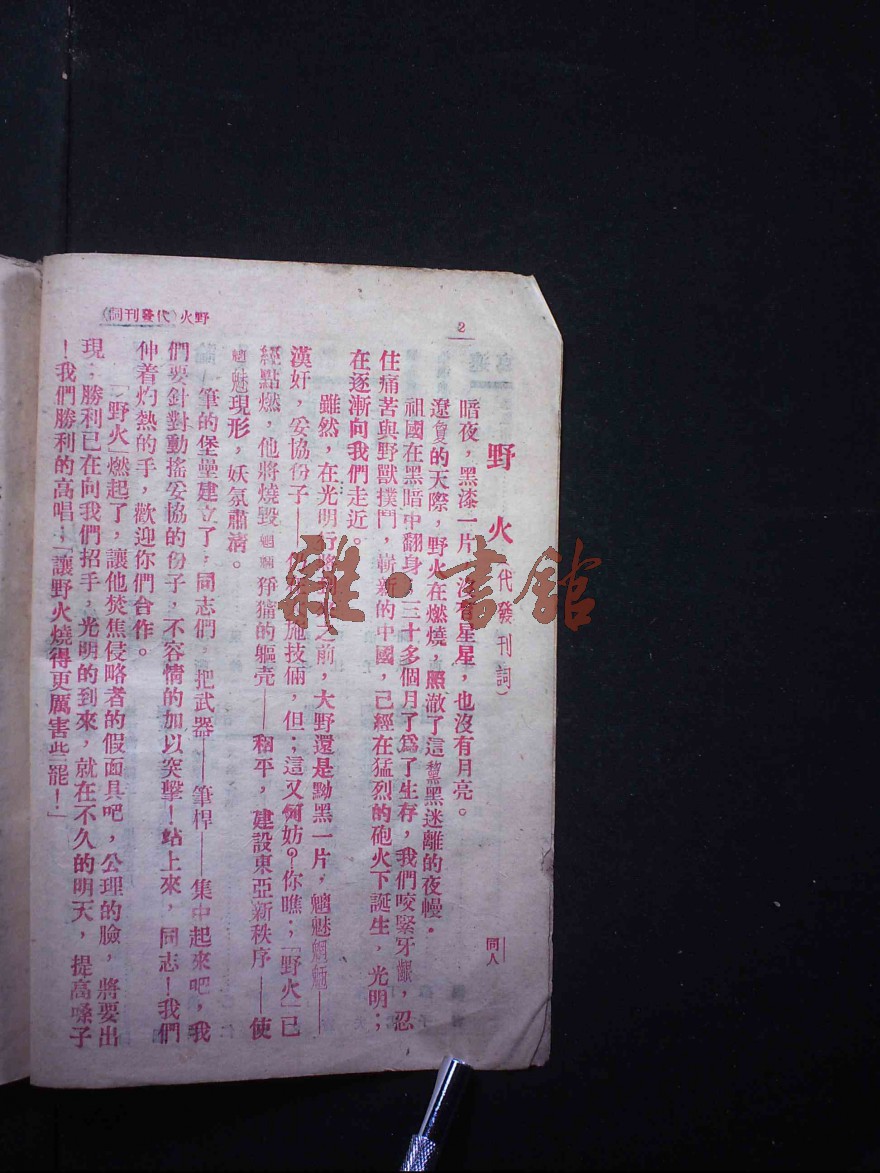 2
野火《代發刊詞》
野火(代發刊詞)
同人
暗夜,黑漆一片,沒有星星,也沒有月亮。
遼夐的天際,野火在燃燒,照澈了這黧黑迷離的夜幔.
祖國在黑暗中翻身,三十多個月了爲了生存,我們咬緊牙齦,忍
住痛苦與野獸撲鬥,嶄新的中國,已經在猛烈的砲火下誕生,光明;
在逐漸向我們走近。
雖然,在光明行將之前,大野還是黝黑一片,魑魅魍魎——
漢奸,妥協份子——施技倆,但;這又何妨?你瞧;「野火」已
經點燃,他將燒毀魍魎猙獰的軀壳——和平,建設東亞新秩序——使
魑魅現形,妖氛肅清。
筆的堡壘建立了,同志們,把武器——筆桿——集中起來吧,我
們要針對動搖妥協的份子,不容情的加以突擊!站上來,同志!我們
伸着灼熱的手,歡迎你們合作。
「野火」燃起了,讓他焚焦侵略者的假面具吧,公理的臉,將要出
現;勝利已在向我們招手,光明的到來,就在不久的明天,提高嗓子
!我們勝利的高唱;「讓野火燒得更厲害些罷!」
雜·書館